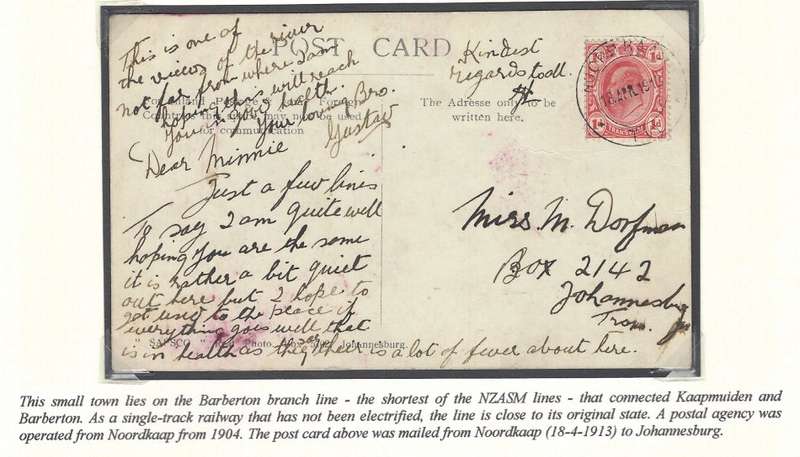 This is one of
the views of the river
not far from where I am
hoping this will reach
you in good health.
Your loving Bro.
Gustav
POST CARD
Kindest
regards to all.
for communication
The Adresse only to be
written here.
1d
TRANSVAAL
Dear Minnie
Just a few lines
To say I am quite well
hoping you are the same
it is rather a bit quiet
out here but I hope to
get used to the place if
everything goes well that
is in health as there is a lot of fever about here.
"SAPSCO" Real Photo, Box 5792, Johannesburg.
Miss. M. Dorfman
Box 2142
Johannesburg
Tran.
This small town lies on the Barberton branch line - the shortest of the NZASM lines - that connected Kaapmuiden and
Barberton. As a single-track railway that has not been electrified, the line is close to its original state. A postal agency was
operated from Noordkaap from 1904. The post card above was mailed from Noordkaap (18-4-1913) to Johannesburg.